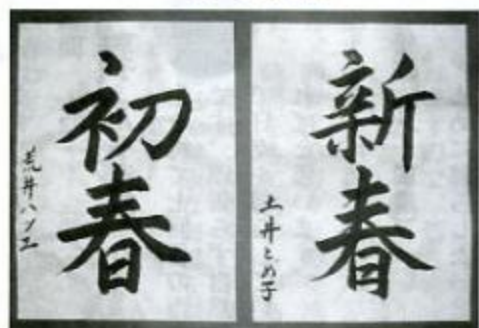 新春
土井とめ子
初春
荒井ハツエ